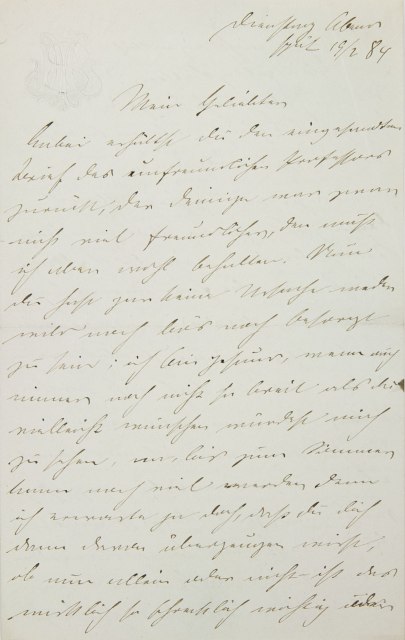 Dienstag Abend
spät 19/2 84
Mein Geliebter
Anbei erhältst du den eingesandten
Brief des unfreundlichen Professors
zurück, der Deinige war zwar
nicht viel freundlicher, den muß
ich aber wohl behalten. Nun
du hast gar keine Ursache weder
mehr noch bös noch besorgt
zu sein; ich bin gesund, wenn auch
immer noch nicht so breit als du
vielleicht wünschen würdest mich
zu sehen, bis zum Sommer
kann noch viel werden denn
ich erwarte ja doch, daß du dich
dann davon überzeugen wirst,
ob nun allein oder nicht ist das
wirklich so schrecklich wichtig